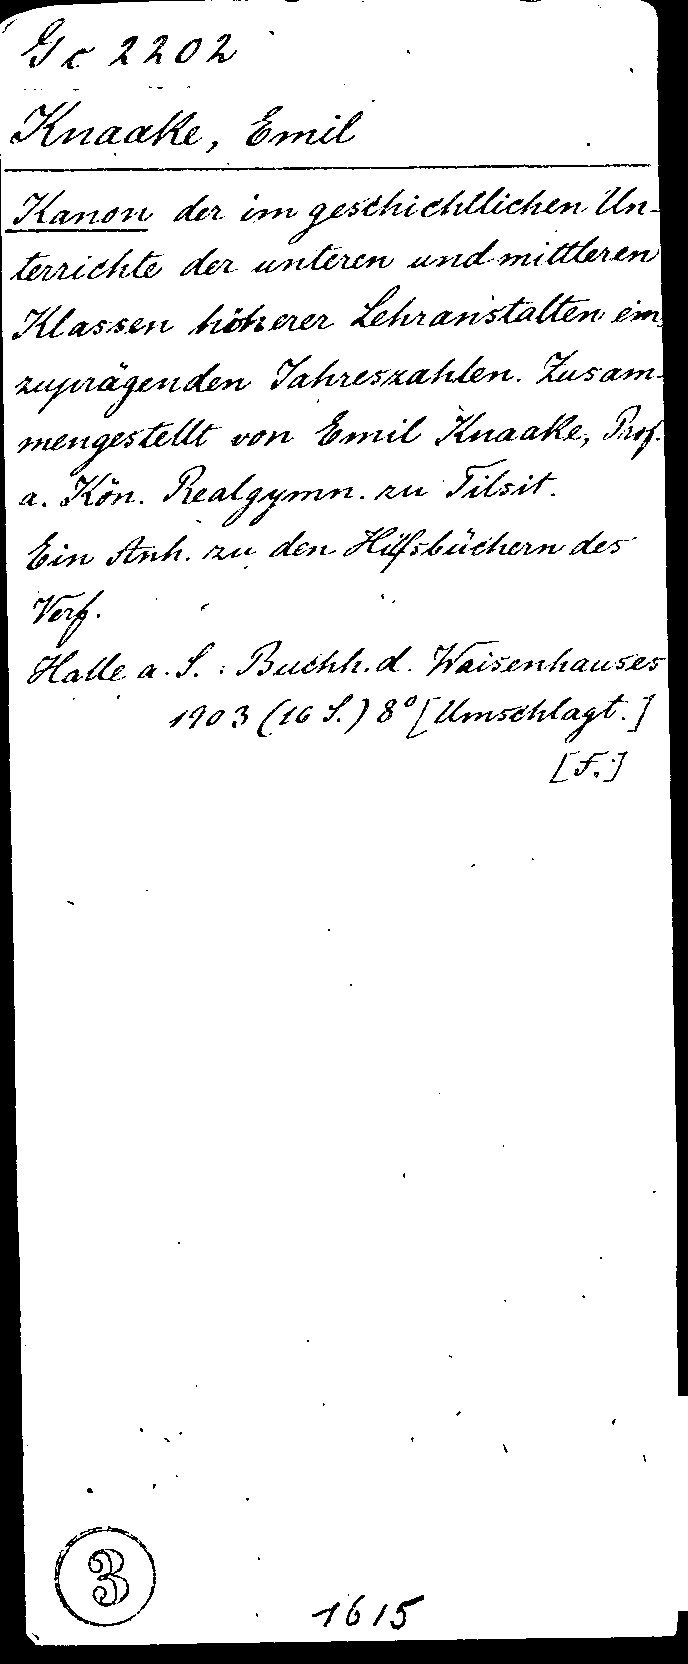 Gc 2202
Knaake, Emil
Kanon der im geschichtlichen Un-
terrichte der unteren und mittleren
Klassen höherer Lehranstalten ein-
zuprägenden Jahreszahlen. Zusam-
mengestellt von Emil Knaake, Prof.
a. Kön. Realgymn. zu Tilsit.
Ein Anh. zu den Hilfsbüchern des
Verf.
Halle a. S. : Buchh. d. Waisenhauses
1903 (16 S.) 8° [Umschlagt.]
[F.]
3
1615